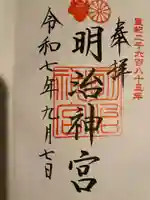 皇紀二千六百八十五年
奉拝
明治神宮
令和七年九月七日